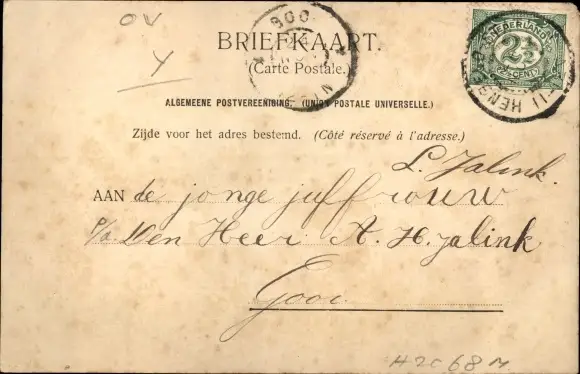 OV
Y
BRIEFKAART.
(Carte Postale.)
NEDERLAND
2½
CENT
ALGEMEENE POSTVEREENIGING. (UNION POSTALE UNIVERSELLE.)
Zijde voor het adres bestemd. (Côté réservé à l'adresse.)
L. Jalink.
AAN de jonge juffrouw
p/a. Den Heer A. H. Jalink
Goor
H2C68M